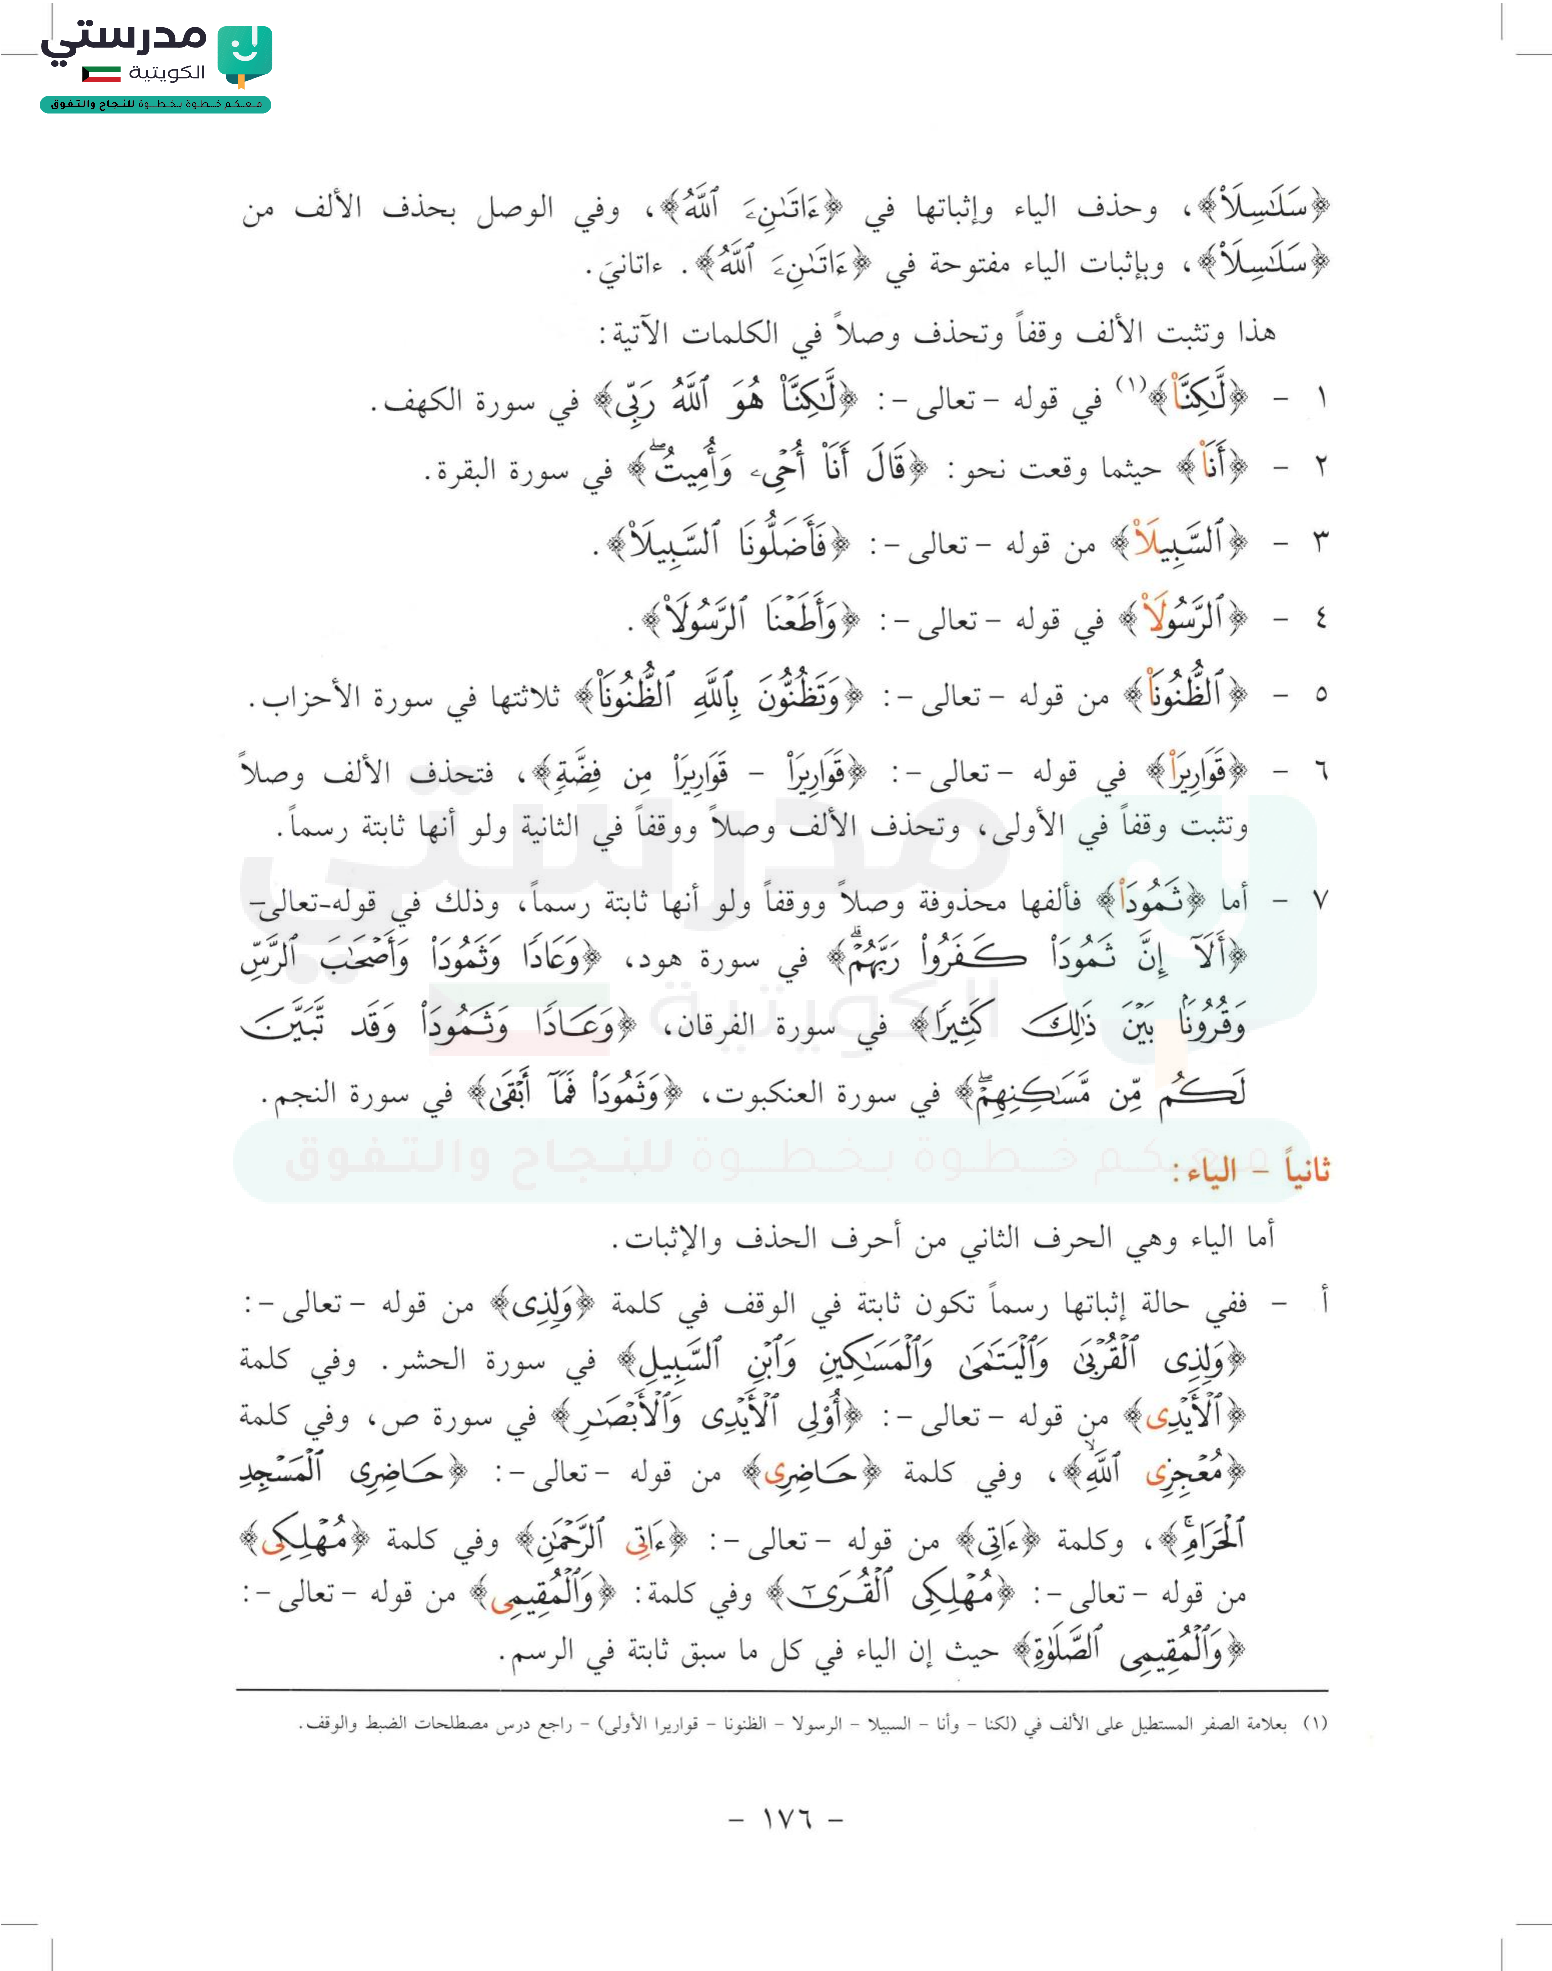 مدرستي
الكويتية
معكم خطوة بخطوة للنجاح والتفوق
﴿سَلَٰسِلَا۟﴾، وحذف الياء وإثباتها في ﴿ءَاتَىٰنِۦَ ٱللَّهُ﴾، وفي الوصل بحذف الألف من
﴿سَلَٰسِلَا۟﴾، وبإثبات الياء مفتوحة في ﴿ءَاتَىٰنِۦَ ٱللَّهُ﴾. ءاتانيَ.
هذا وتثبت الألف وقفاً وتحذف وصلاً في الكلمات الآتية:
١ - ﴿لَّٰكِنَّا۠﴾(١) في قوله - تعالى -: ﴿لَّٰكِنَّا۠ هُوَ ٱللَّهُ رَبِّى﴾ في سورة الكهف.
٢ - ﴿أَنَا۠﴾ حيثما وقعت نحو: ﴿قَالَ أَنَا۠ أُحْىِۦ وَأُمِيتُ ۖ﴾ في سورة البقرة.
٣ - ﴿ٱلسَّبِيلَا۠﴾ من قوله - تعالى -: ﴿فَأَضَلُّونَا ٱلسَّبِيلَا۠﴾.
٤ - ﴿ٱلرَّسُولَا۠﴾ في قوله - تعالى -: ﴿وَأَطَعْنَا ٱلرَّسُولَا۠﴾.
٥ - ﴿ٱلظُّنُونَا۠﴾ من قوله - تعالى -: ﴿وَتَظُنُّونَ بِٱللَّهِ ٱلظُّنُونَا۠﴾ ثلاثتها في سورة الأحزاب.
٦ - ﴿قَوَارِيرَا۠﴾ في قوله - تعالى -: ﴿قَوَارِيرَا۠ - قَوَارِيرَا۟ مِن فِضَّةٍ﴾، فتحذف الألف وصلاً
وتثبت وقفاً في الأولى، وتحذف الألف وصلاً ووقفاً في الثانية ولو أنها ثابتة رسماً.
٧ - أما ﴿ثَمُودَا۟﴾ فألفها محذوفة وصلاً ووقفاً ولو أنها ثابتة رسماً، وذلك في قوله-تعالى-
﴿أَلَآ إِنَّ ثَمُودَا۟ كَفَرُوا۟ رَبَّهُمْ ۗ﴾ في سورة هود، ﴿وَعَادًا وَثَمُودَا۟ وَأَصْحَٰبَ ٱلرَّسِّ
وَقُرُونًۢا بَيْنَ ذَٰلِكَ كَثِيرًا﴾ في سورة الفرقان، ﴿وَعَادًا وَثَمُودَا۟ وَقَد تَّبَيَّنَ
لَكُم مِّن مَّسَٰكِنِهِمْ ۖ﴾ في سورة العنكبوت، ﴿وَثَمُودَا۟ فَمَآ أَبْقَىٰ﴾ في سورة النجم.
ثانياً - الياء:
أما الياء وهي الحرف الثاني من أحرف الحذف والإثبات.
أ - ففي حالة إثباتها رسماً تكون ثابتة في الوقف في كلمة ﴿وَلِذِى﴾ من قوله - تعالى -:
﴿وَلِذِى ٱلْقُرْبَىٰ وَٱلْيَتَٰمَىٰ وَٱلْمَسَٰكِينِ وَٱبْنِ ٱلسَّبِيلِ﴾ في سورة الحشر. وفي كلمة
﴿ٱلْأَيْدِى﴾ من قوله - تعالى -: ﴿أُو۟لِى ٱلْأَيْدِى وَٱلْأَبْصَٰرِ﴾ في سورة ص، وفي كلمة
﴿مُعْجِزِى ٱللَّهِ ۙ﴾، وفي كلمة ﴿حَاضِرِى﴾ من قوله - تعالى -: ﴿حَاضِرِى ٱلْمَسْجِدِ
ٱلْحَرَامِ ۚ﴾، وكلمة ﴿ءَاتِى﴾ من قوله - تعالى -: ﴿ءَاتِى ٱلرَّحْمَٰنِ﴾ وفي كلمة ﴿مُهْلِكِى﴾
من قوله - تعالى -: ﴿مُهْلِكِى ٱلْقُرَىٰٓ﴾ وفي كلمة: ﴿وَٱلْمُقِيمِى﴾ من قوله - تعالى -:
﴿وَٱلْمُقِيمِى ٱلصَّلَوٰةِ﴾ حيث إن الياء في كل ما سبق ثابتة في الرسم.
(١) بعلامة الصفر المستطيل على الألف في (لكنا - وأنا - السبيلا - الرسولا - الظنونا - قواريرا الأولى) - راجع درس مصطلحات الضبط والوقف.
- ١٧٦ -